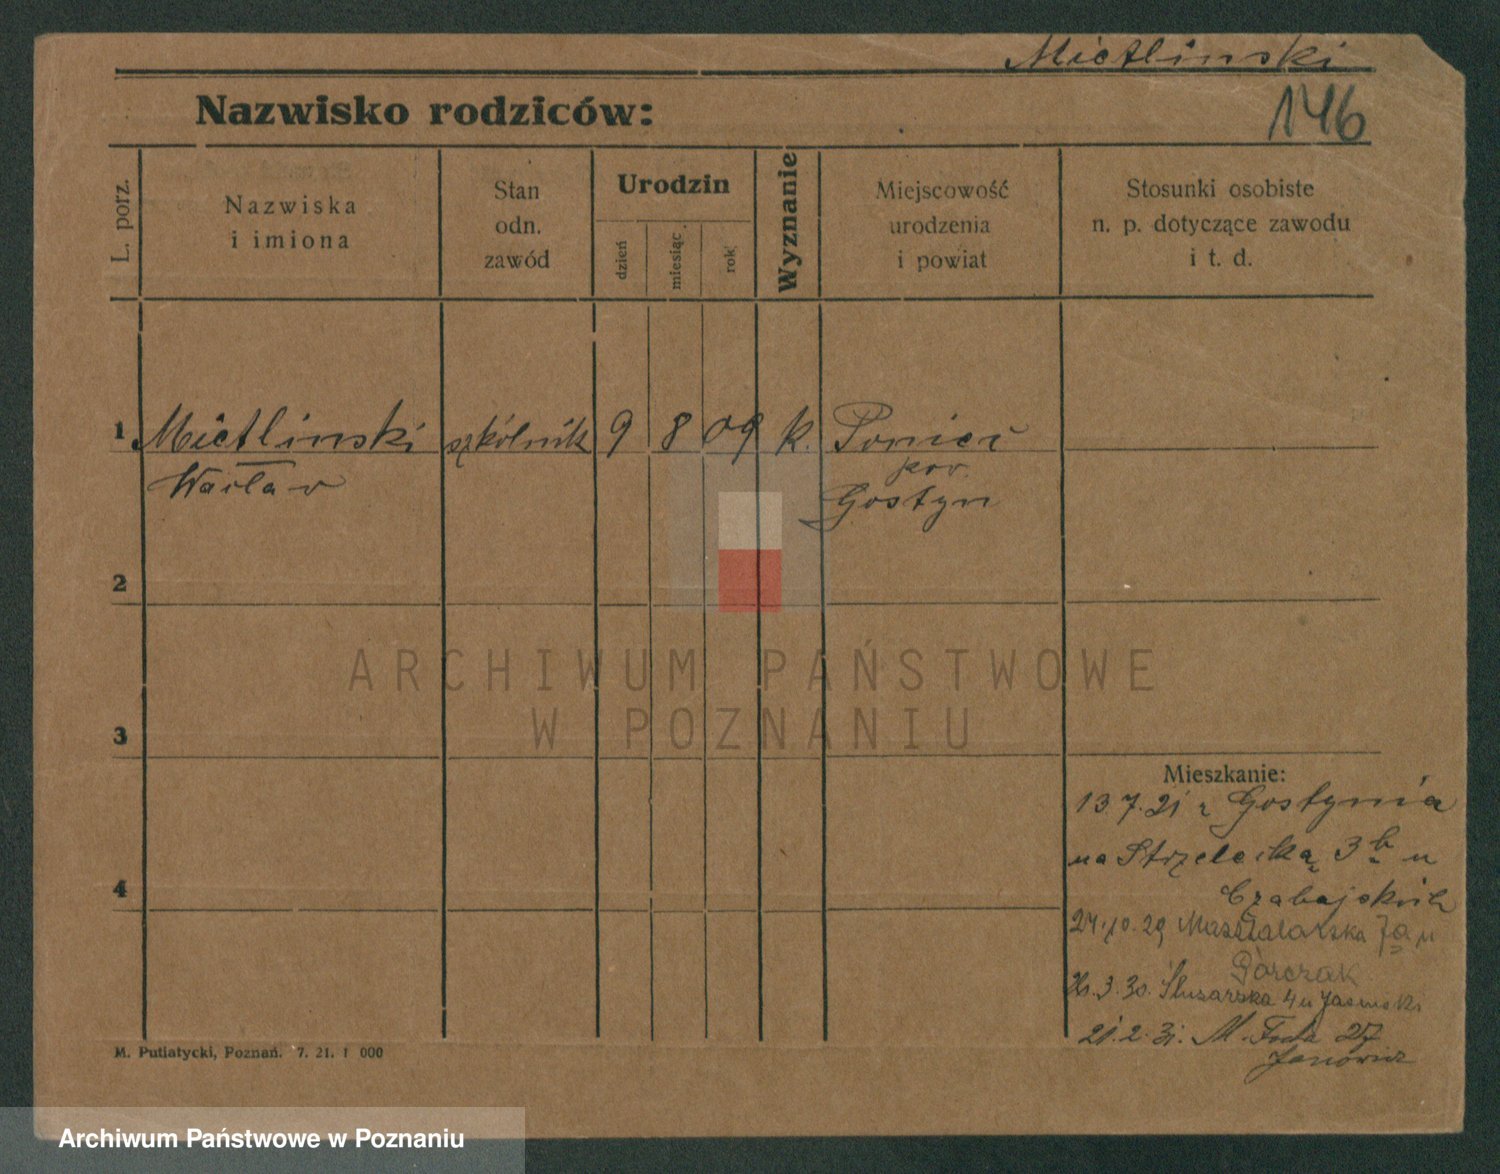 Mietlinski
Nazwisko rodziców:
146
L. porz.
Nazwiska
i imiona
Stan
odn.
zawód
Urodzin
dzień
miesiąc
rok
Wyznanie
Miejscowość
urodzenia
i powiat
Stosunki osobiste
n. p. dotyczące zawodu
i t. d.
1 Mietlinski szkólnik 9 8 09 k. Poniec
Wacław pow.
Gostyn
2
ARCHIWUM PAŃSTWOWE
W POZNANIU
3
Mieszkanie:
13.7.21 z Gostynia
na Strzelecką 3b u
Czabajskich
24.10.29 Masztalarska 7a u
Górczak
3.30. Ślusarska 4 u
21.2.31. M. 27
Janowicz
4
M. Putiatycki, Poznań. 7. 21. 1 000
Archiwum Państwowe w Poznaniu